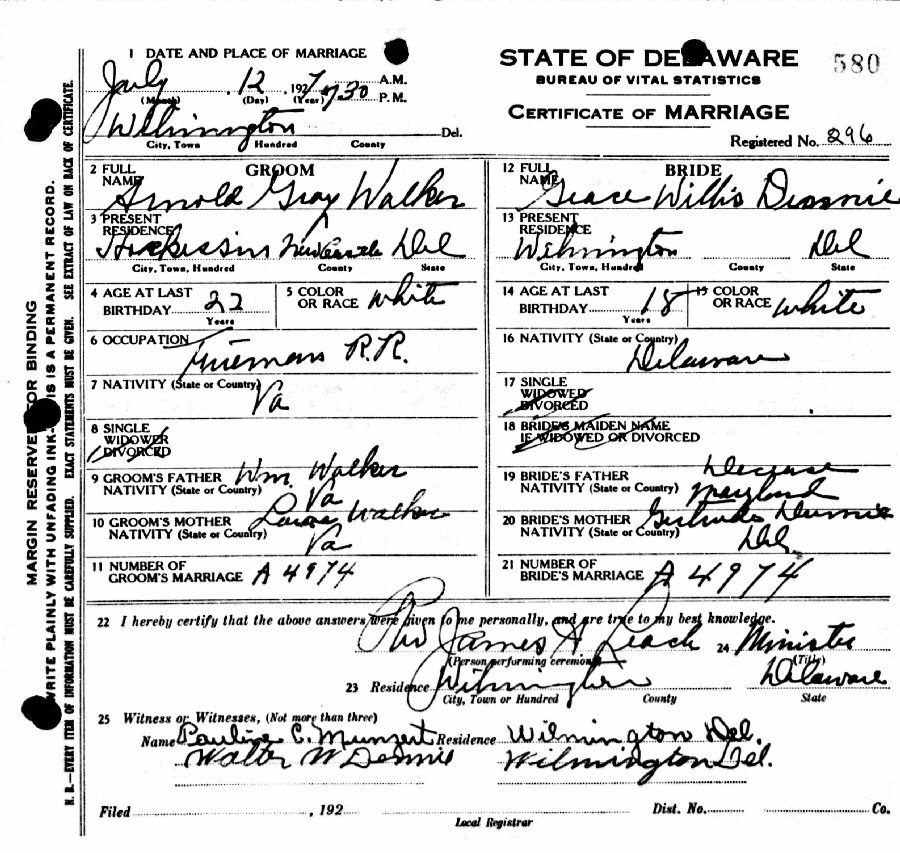 1 DATE AND PLACE OF MARRIAGE
July 12, 1927 7 30 A.M. P.M.
(Month) (Day) (Year)
Wilmington Del.
City, Town Hundred County
STATE OF DELAWARE
BUREAU OF VITAL STATISTICS
CERTIFICATE OF MARRIAGE
580
Registered No. 296
MARGIN RESERVED FOR BINDING
WRITE PLAINLY WITH UNFADING INK—THIS IS A PERMANENT RECORD.
N. B.—EVERY ITEM OF INFORMATION MUST BE CAREFULLY SUPPLIED. EXACT STATEMENTS MUST BE GIVEN. SEE EXTRACT OF LAW ON BACK OF CERTIFICATE.
GROOM
2 FULL NAME Arnold Gray Walker
3 PRESENT RESIDENCE Newcastle Del
City, Town, Hundred County State
4 AGE AT LAST BIRTHDAY 22
Years
5 COLOR OR RACE White
6 OCCUPATION R.R.
7 NATIVITY (State or Country)
Va
8 SINGLE
WIDOWER
DIVORCED
9 GROOM'S FATHER Wm. Walker
NATIVITY (State or Country) Va
10 GROOM'S MOTHER Walker
NATIVITY (State or Country) Va
11 NUMBER OF GROOM'S MARRIAGE A 4974
BRIDE
12 FULL NAME Grace Willis
13 PRESENT RESIDENCE Wilmington Del
City, Town, Hundred County State
14 AGE AT LAST BIRTHDAY 18
Years
15 COLOR OR RACE White
16 NATIVITY (State or Country)
Delaware
17 SINGLE
WIDOWED
DIVORCED
18 BRIDE'S MAIDEN NAME
IF WIDOWED OR DIVORCED
19 BRIDE'S FATHER
NATIVITY (State or Country) Maryland
20 BRIDE'S MOTHER Gertrude
NATIVITY (State or Country) Del.
21 NUMBER OF BRIDE'S MARRIAGE A 4974
22 I hereby certify that the above answers were given to me personally, and are true to my best knowledge.
James A Leach 24 Minister
(Person performing ceremony) (Title)
23 Residence Wilmington Delaware
City, Town or Hundred County State
25 Witness or Witnesses, (Not more than three)
Name Pauline C. Munzert Residence Wilmington Del.
Walter W Dennis Wilmington Del.
Filed , 192 Dist. No. Co.
Local Registrar